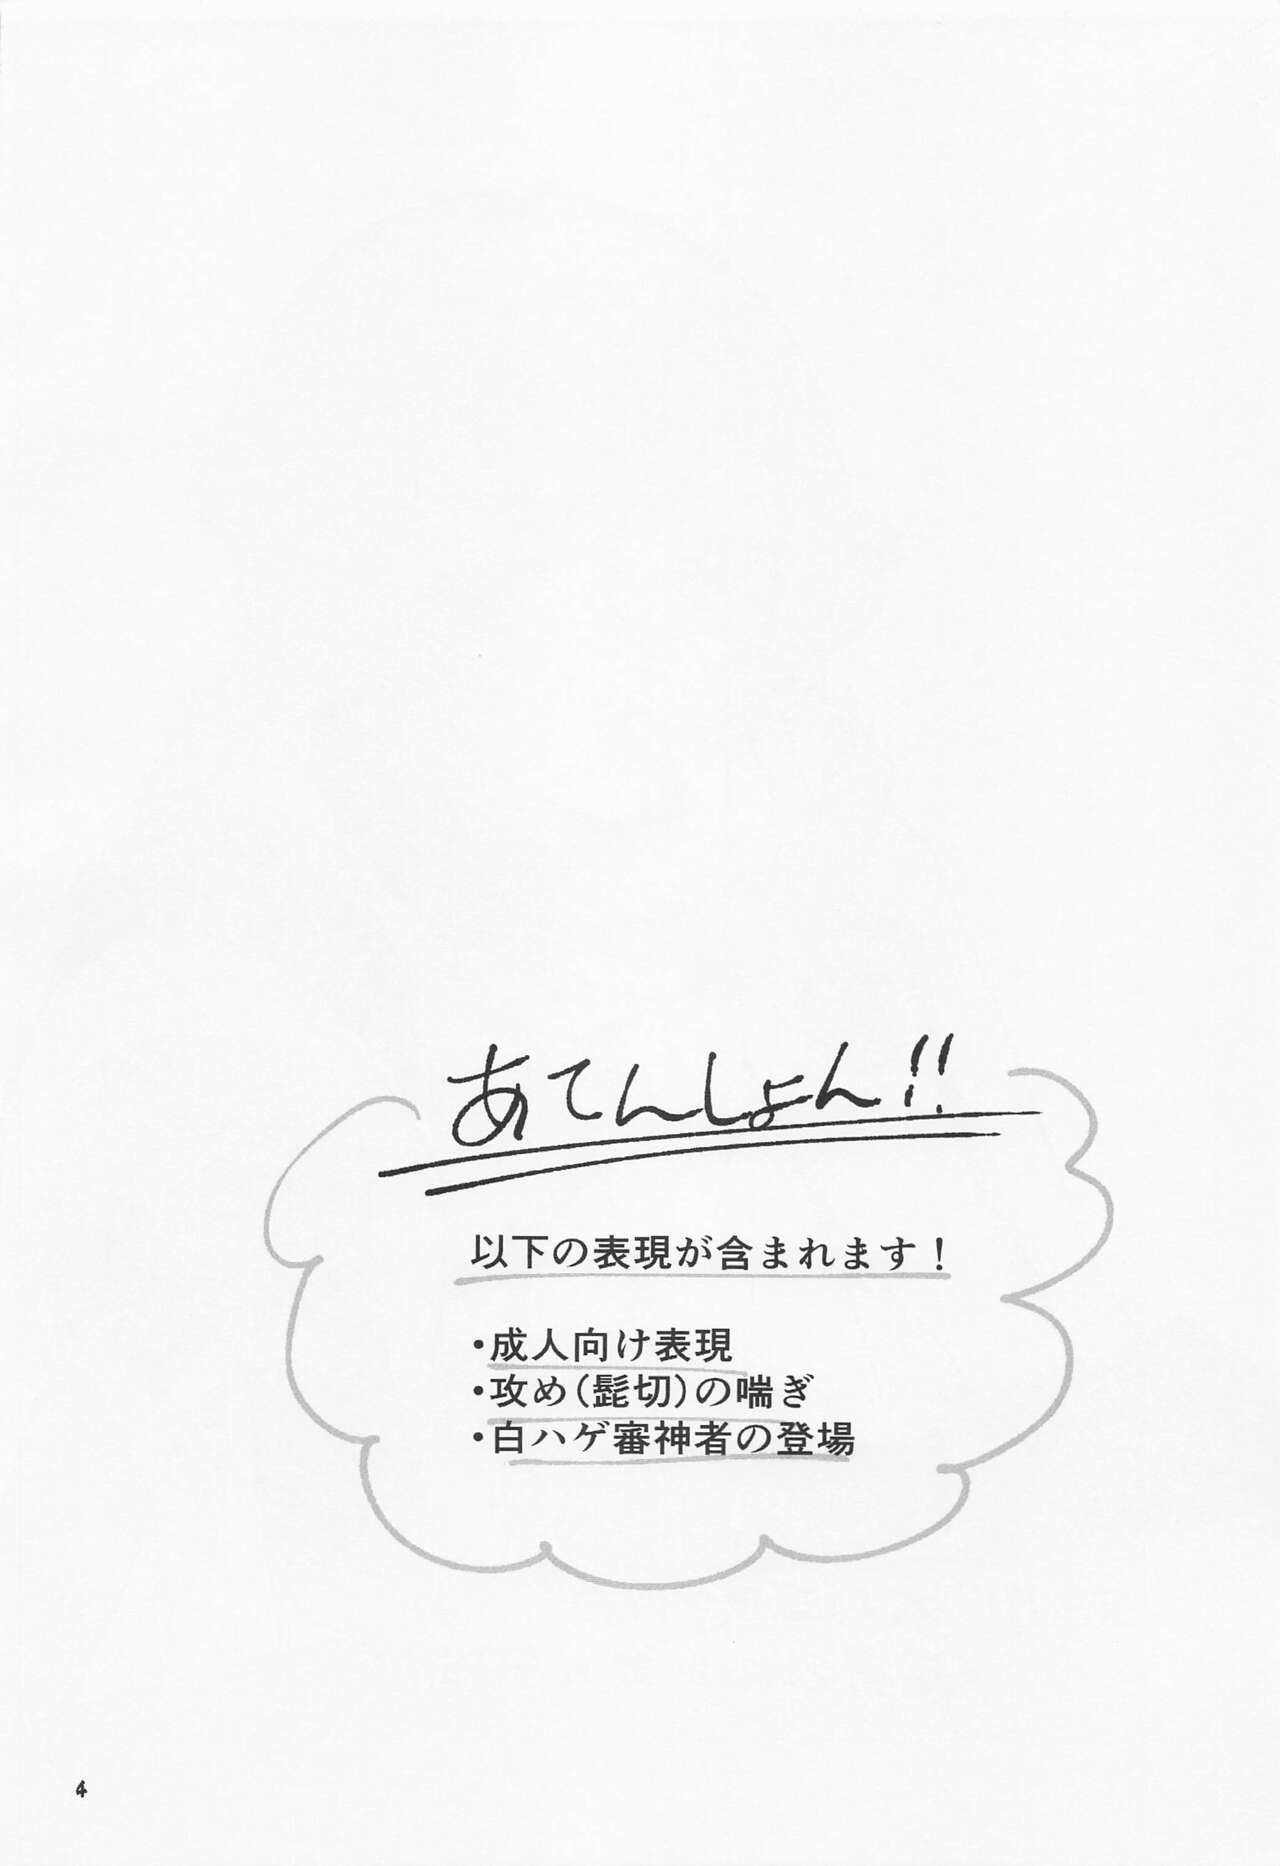 あてんしょん!!
以下の表現が含まれます！
・成人向け表現
・攻め(髭切)の喘ぎ
・白ハゲ審神者の登場
4